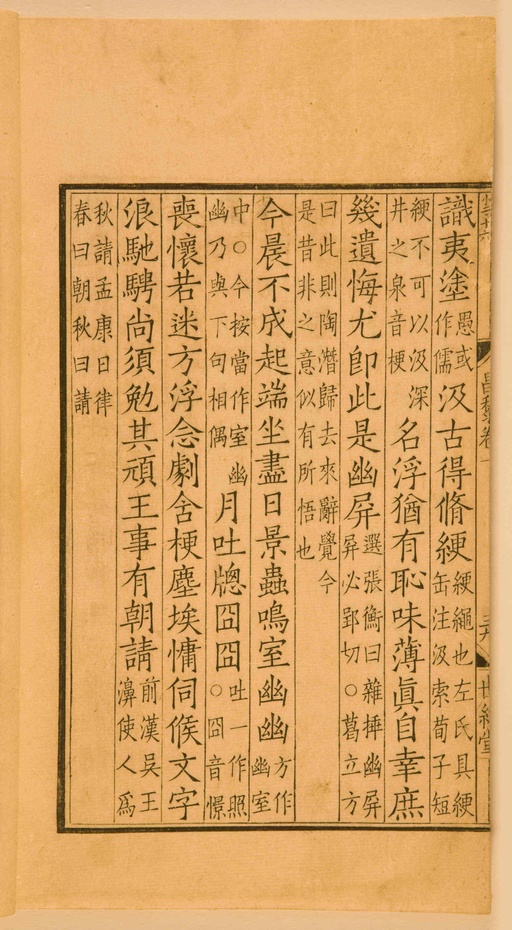 識夷塗愚或作儒汲古得脩綆綆繩也左氏具綆缶注汲索荀子短
綆不可以汲深井之泉音梗名浮猶有恥味薄眞自幸庶
幾遺悔尤卽此是幽屏選張衡曰雜揷幽屏屏必郢切○葛立方
曰此則陶潛歸去來辭覺今是昔非之意似有所悟也
今晨不成起端坐盡日景蟲鳴室幽幽方作幽室
中○今按當作室幽幽乃與下句相偶月吐牕囧囧吐一作照○囧音憬
喪懷若迷方浮念劇含梗塵埃慵伺候文字
浪馳騁尚須勉其頑王事有朝請前漢吳王濞使人爲
秋請孟康曰律春曰朝秋曰請